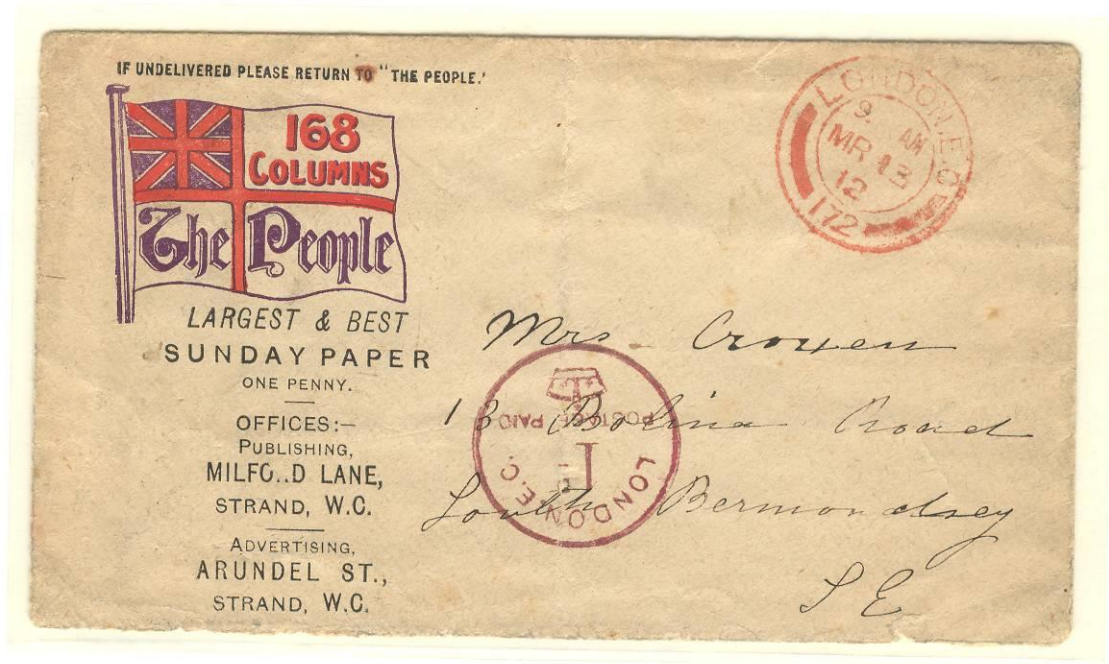 IF UNDELIVERED PLEASE RETURN TO "THE PEOPLE.'
168
COLUMNS
The People
LARGEST & BEST
SUNDAY PAPER
ONE PENNY.
OFFICES:-
PUBLISHING,
MILFO..D LANE,
STRAND, W.C.
ADVERTISING,
ARUNDEL ST.,
STRAND, W.C.
LONDON. E.C
9 AM
MR 13
12
172
Mrs Croxen
13 Bolina Road
South Bermondsey
S E
POSTAGE PAID
1
LONDON E.C.